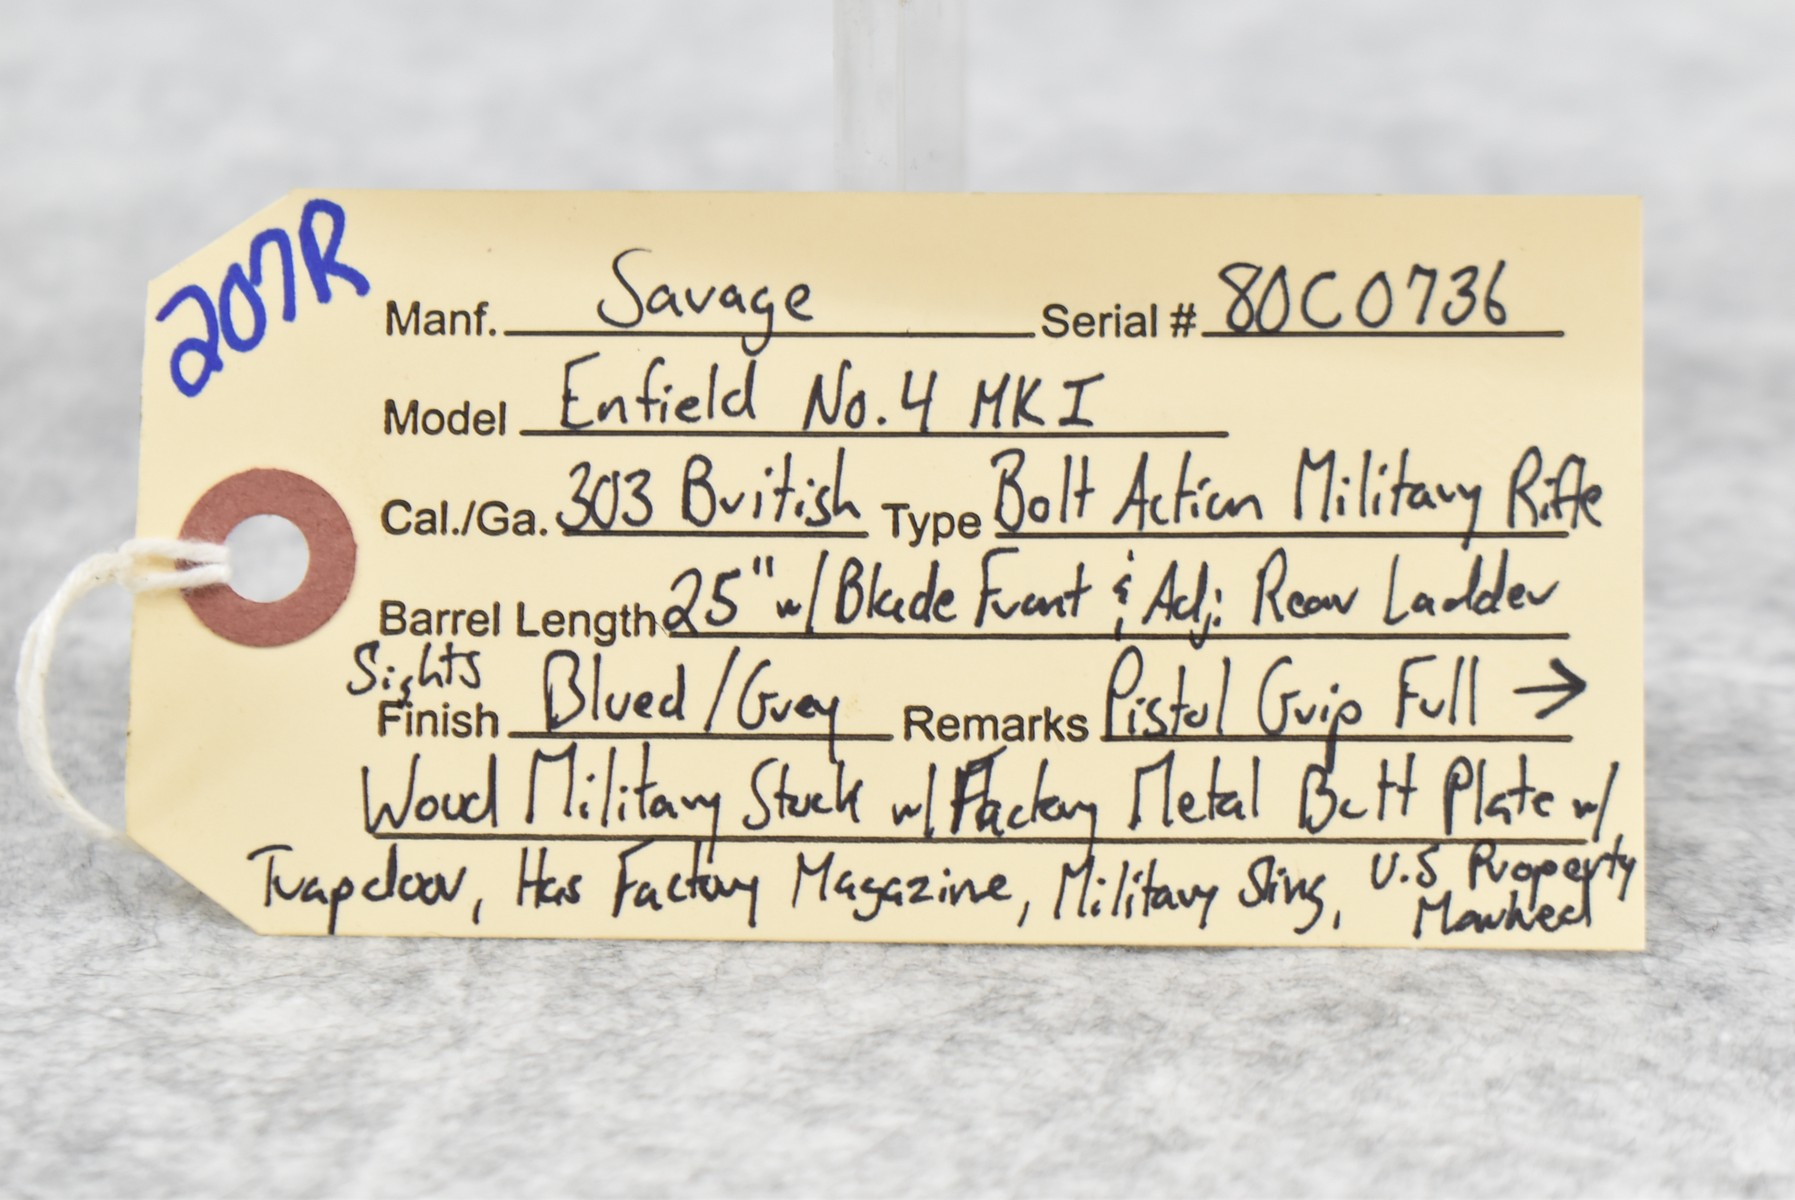 207R
Manf. Savage Serial # 80C0736
Model Enfield No.4 MK I
Cal./Ga. 303 British Type Bolt Action Military Rifle
Barrel Length 25" w/ Blade Front & Adj. Rear Ladder
Sights
Finish Blued/Grey Remarks Pistol Grip Full →
Wood Military Stock w/ Factory Metal Butt Plate w/
Trapdoor, Has Factory Magazine, Military Sling, U.S Property
Marked